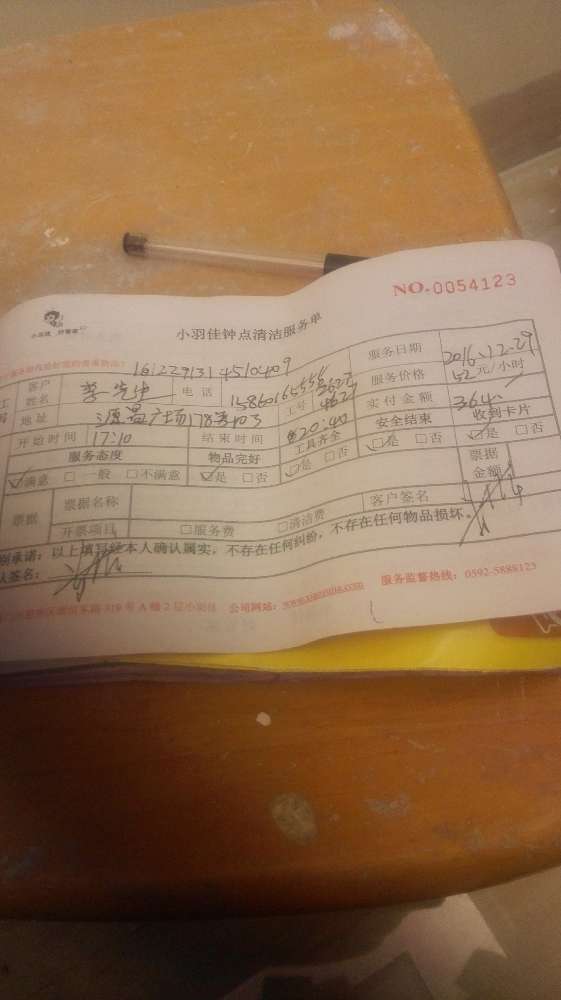 NO.0054123
小羽佳钟点清洁服务单
161229131 4510409
客户姓名 李先生 电话 工号 4627 服务日期 2016.12.29
服务价格 52元/小时
地址 实付金额 364
开始时间 17:10 结束时间 20:40 安全结束 收到卡片
服务态度 物品完好 工具齐全 ☑是 □否 ☑是 □否
☑满意 □一般 □不满意 ☑是 □否 ☑是 □否 票据金额
票据 票据名称 客户签名
开票项目 □服务费 □清洁费
承诺:以上填写经本人确认属实,不存在任何纠纷,不存在任何物品损坏。
签名:
号A幢2层小羽佳 公司网站: 服务监督热线:0592-5888123